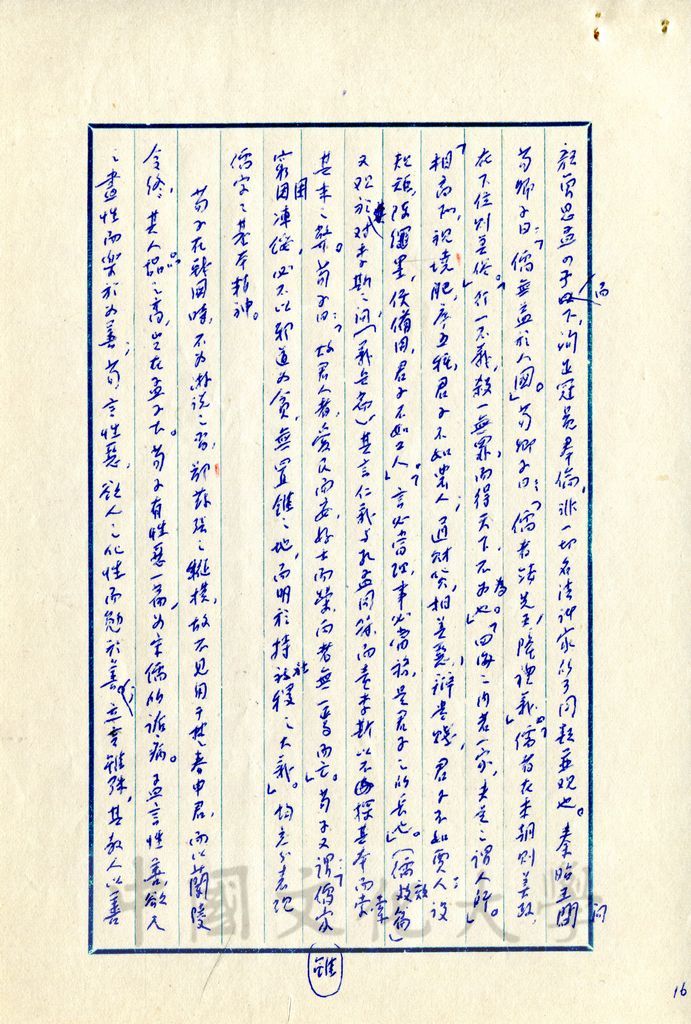 顏曾思孟之子以下,而冠冕羣倫,非一切名法諸家所可同類並觀也。秦昭王問
荀卿子曰:「儒無益於人國。」荀卿子曰:「儒者法先王,隆禮義。」「儒者在本朝則美政,
在下位則美俗。」「行一不義,殺一無罪,而得天下,不為也。」「四海之內若一家,夫是之謂人師。」
「相高下,視墝肥,序五種,君子不如農人;通財貨,相美惡,辯貴賤,君子不如賈人;設
規矩,陳繩墨,便備用,君子不如工人。」「言必當理,事必當務,是君子之所長也。」(儒效篇)
又觀於其對李斯之問(議兵篇)其言仁義與孔孟同歸,而責李斯以不探其本而索
其末之弊。荀子曰:「故君人者,愛民而安,好士而榮,兩者無一焉而亡。」荀子又謂:「儒家
窮困凍餒,必不以邪道為貪,無置錐之地,而明於持社稷之大義。」均充分表現
儒家之基本精神。
荀子在戰國時,不為游說之習,鄙蘇張之縱橫,故不見用于楚春申君,而以蘭陵
令終,其人品之高,豈在孟子下。荀子有性惡一篇,為宋儒所詬病。孟言性善,欲人
之盡性而樂於為善;荀言性惡,欲人之化性而勉於善,立言雖殊,其教人以善
雖
問
16
中國文化大學